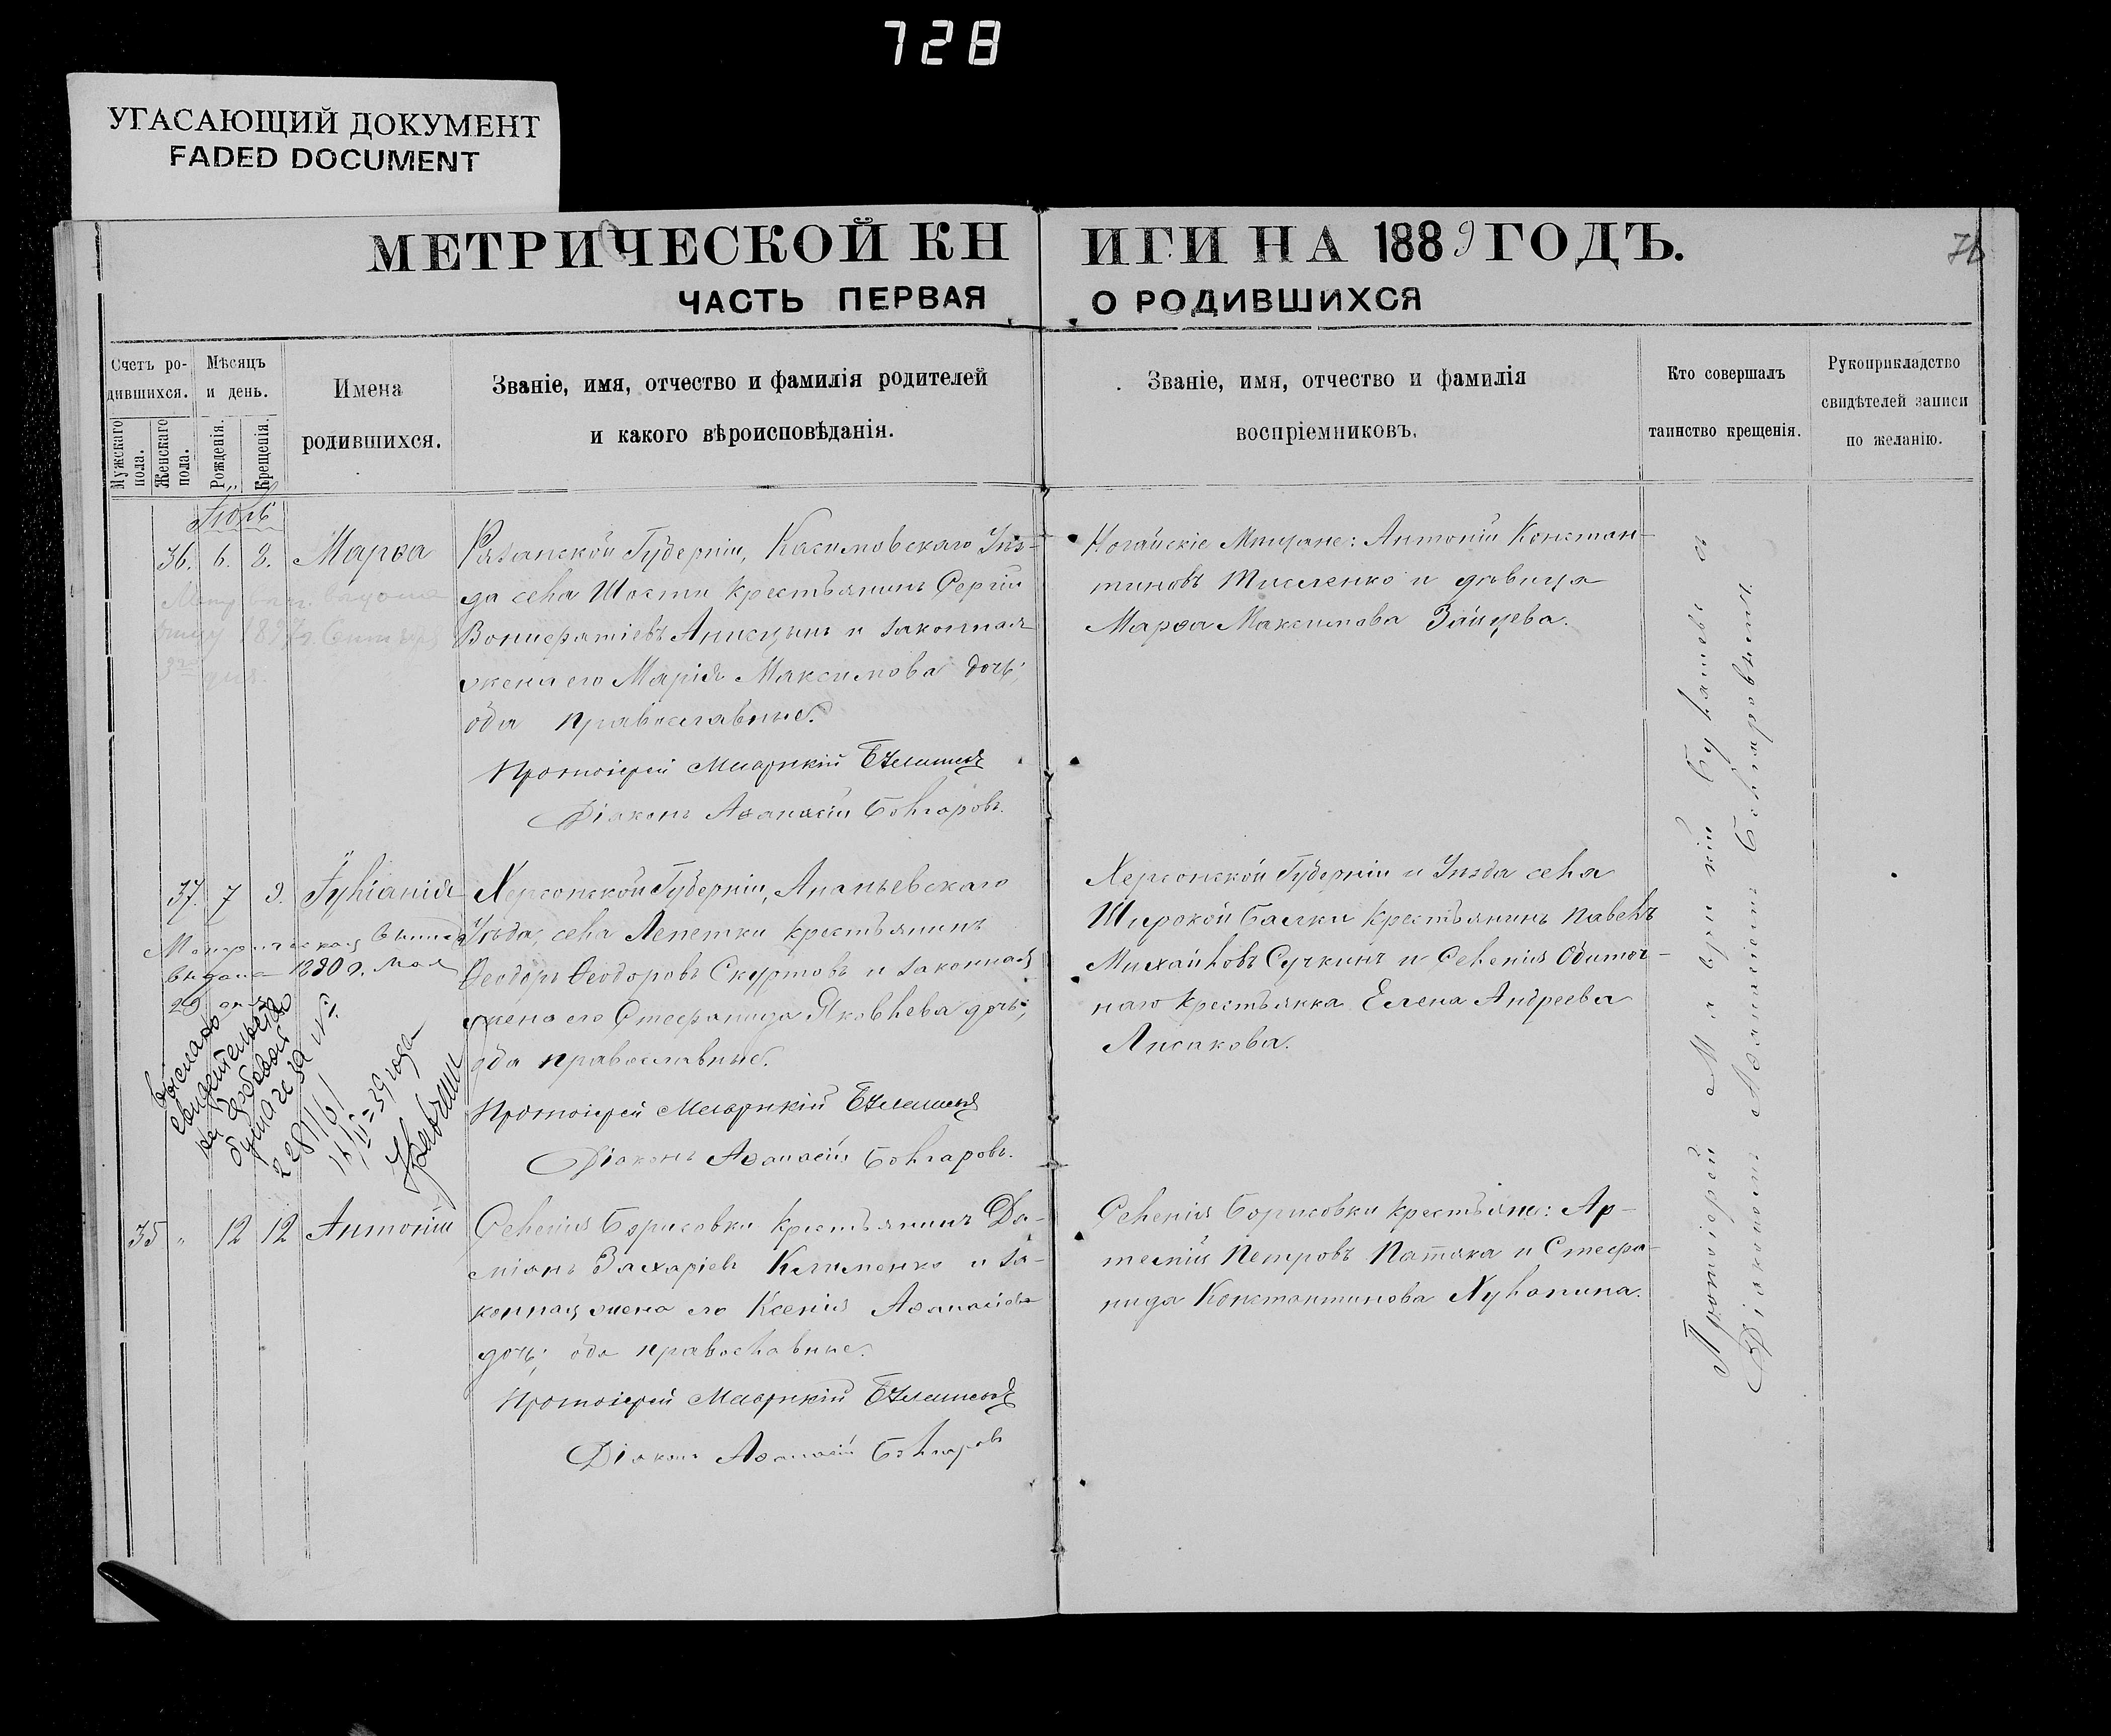 728
УГАСАЮЩИЙ ДОКУМЕНТ
FADED DOCUMENT
МЕТРИЧЕСКОЙ КНИГИ НА 1889 ГОДЪ.
76
ЧАСТЬ ПЕРВАЯ О РОДИВШИХСЯ
Счетъ ро-
дившихся.
Мужскаго пола.
Женскаго пола.
Мѣсяцъ
и день.
Рожденія.
Крещенія.
Имена
родившихся.
Званіе, имя, отчество и фамилія родителей
и какого вѣроисповѣданія.
Званіе, имя, отчество и фамилія
воспріемниковъ.
Кто совершалъ
таинство крещенія.
Рукоприкладство
свидѣтелей записи
по желанію.
36. 6. 8. Марѳа
Рязанской Губерніи, Касимовскаго Уѣз-
да села Шости крестьянинъ Сергій
Вонифатіевъ Анисцынъ и законная
жена его Марія Максимова дочь;
оба православные.
Протоіерей Маврикій
Діаконъ Аѳанасій Болгаровъ.
Ногайскіе Мѣщане: Антоній Констан-
тиновъ Тисленко и дѣвица
Марѳа Максимова Зайцева.
37. 7 9. Іуліанія
Метрическая выпись
выдана 1890 г. Мая
29 дня
Херсонской Губерніи, Ананьевскаго
Уѣзда, села Лепетки крестьянинъ
Ѳеодоръ Ѳеодоровъ Скуртовъ и законная
жена его Стефанида Яковлева дочь;
оба православные.
Протоіерей Маврикій
Діаконъ Аѳанасій Болгаровъ.
Херсонской Губерніи и Уѣзда села
Широкой Балки крестьянинъ Павелъ
Михайловъ Сучкинъ и Селенія Обиточ-
наго крестьянка Елена Андреева
Лисакова.
выслано
свидетельство
на гербовой
бумаге за №
228116
39 года
35 " 12 12 Антоній
Селенія Борисовки крестьянинъ Да-
міанъ Захаріевъ Клименко и за-
конная жена его Ксенія Аѳанасіева
дочь; оба православные.
Протоіерей Маврикій
Діаконъ Аѳанасій Болгаровъ
Селенія Борисовки крестьяне: Ар-
темій Петровъ Патяка и Стефа-
нида Константинова Лулопина.
Протоіерей Маврикій съ
Діакономъ Аѳанасіемъ Болгаровымъ.